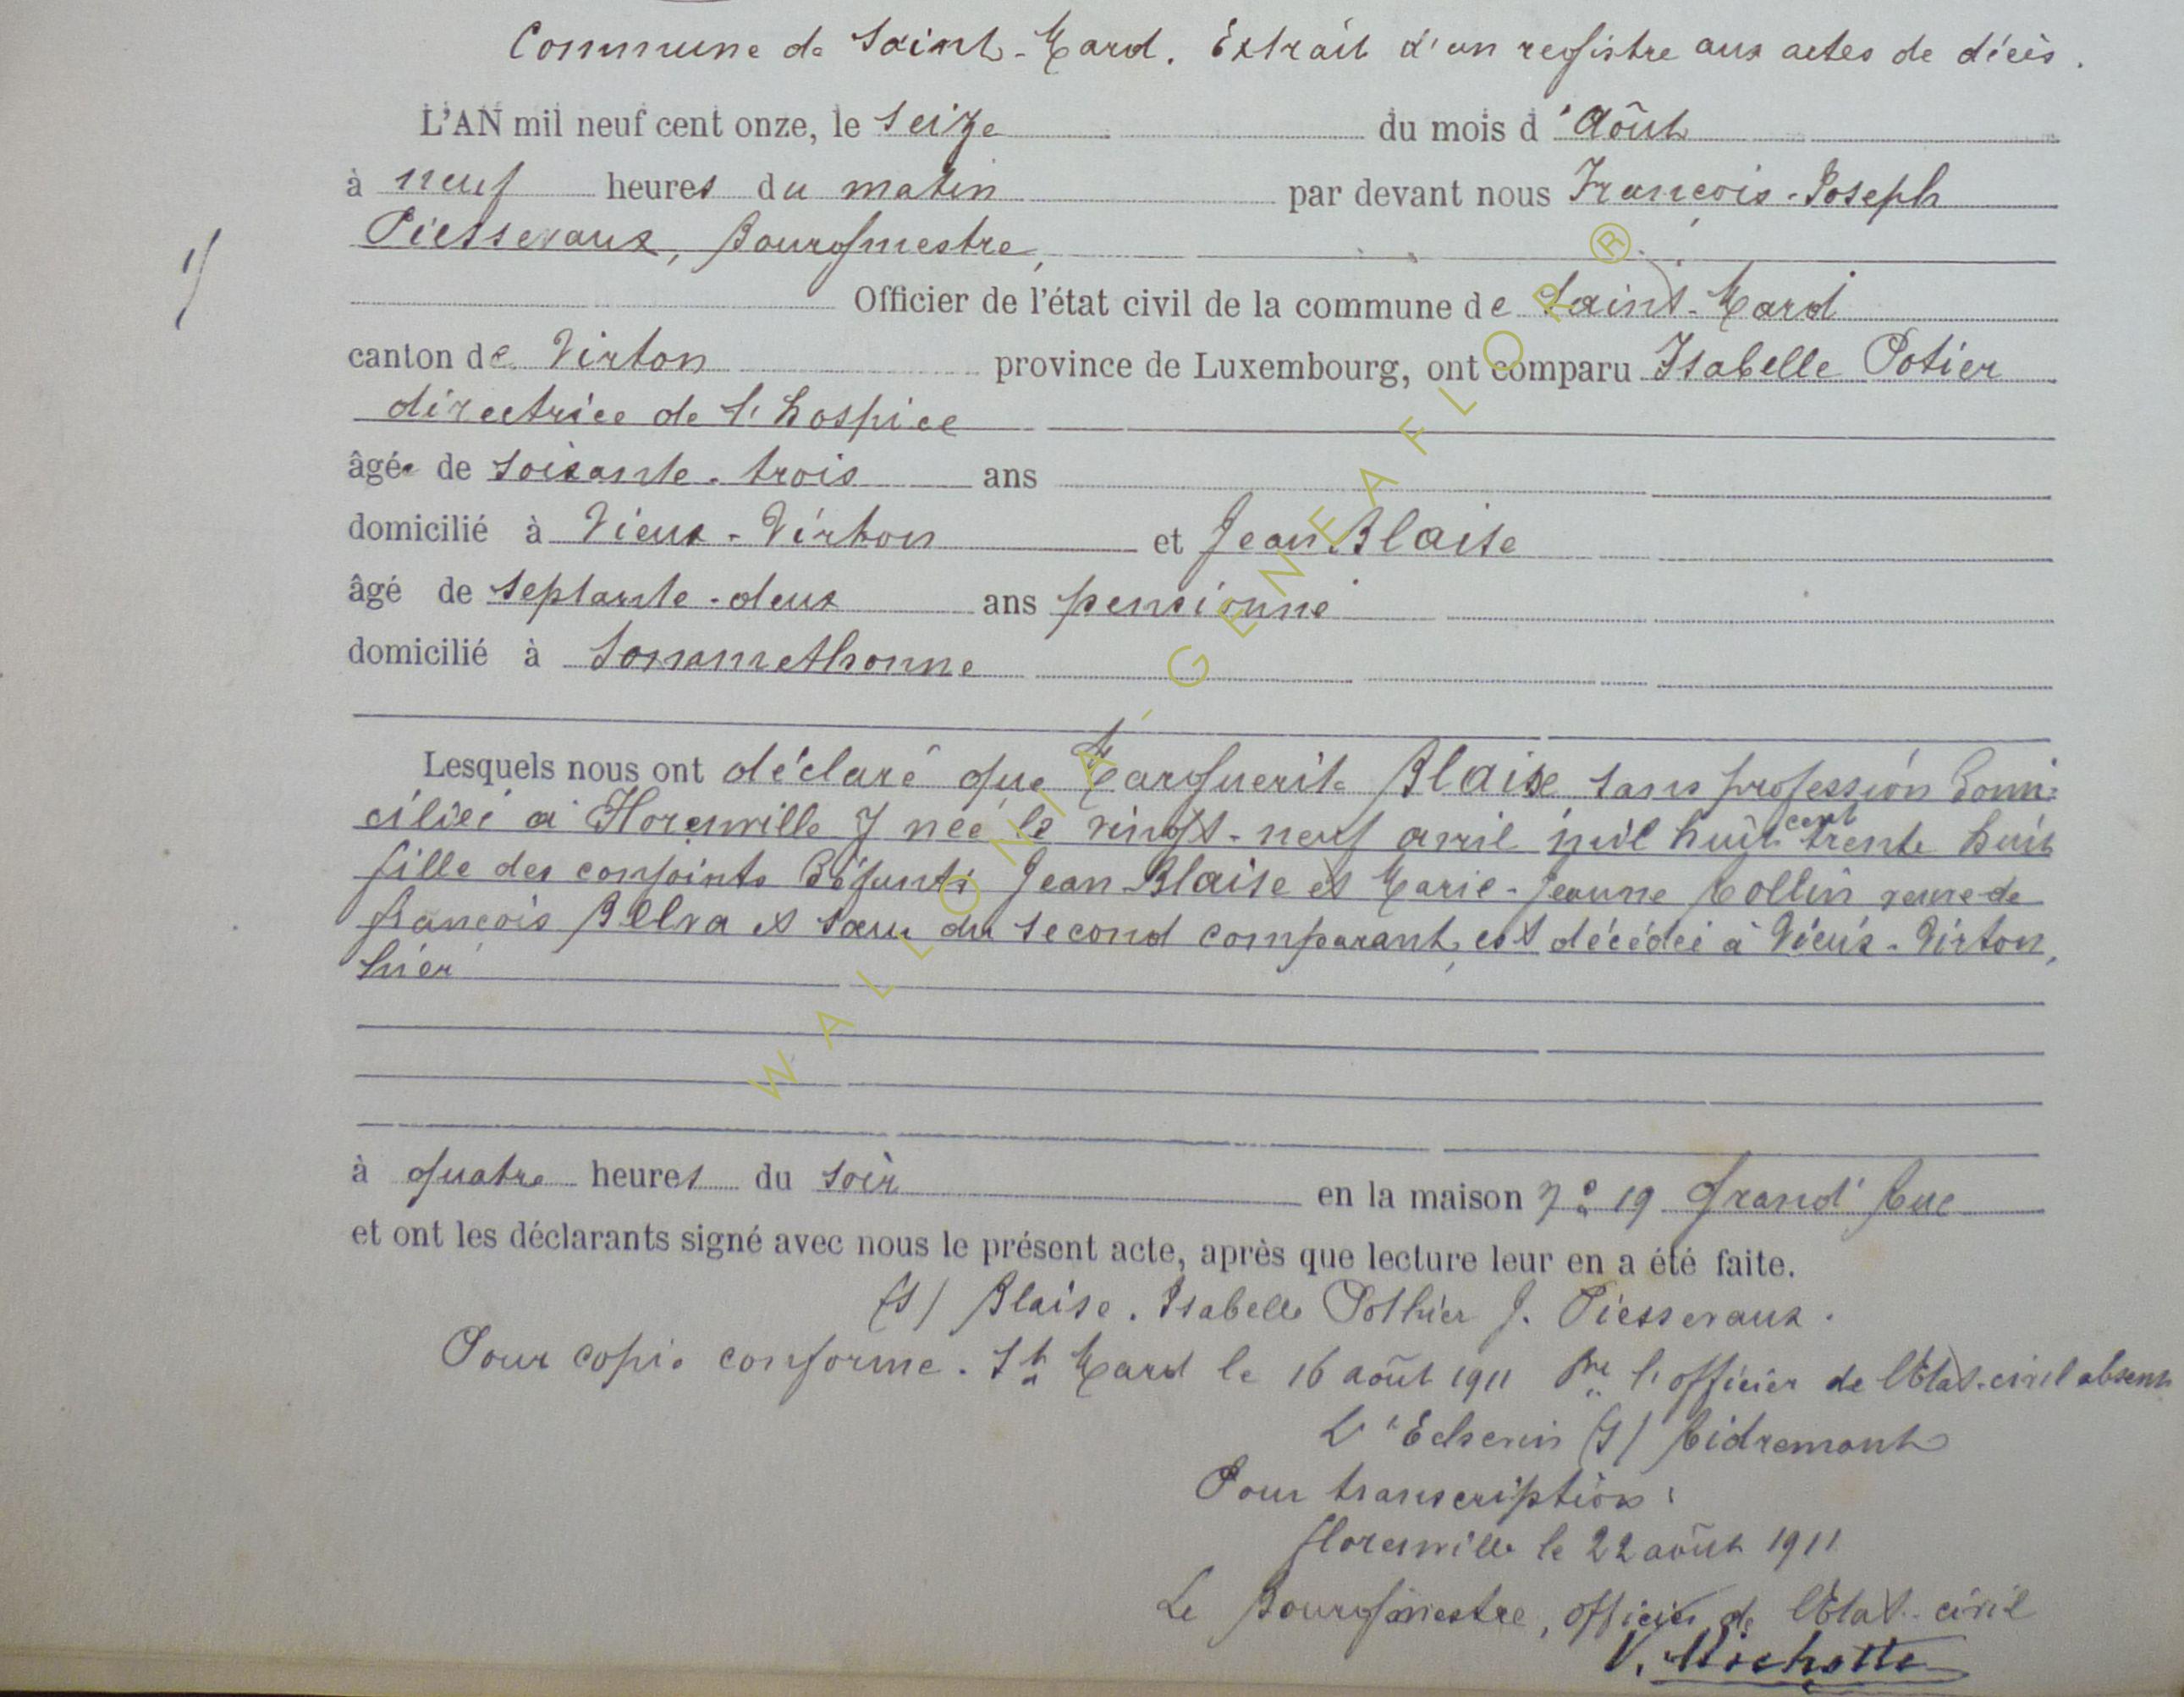 Commune de Saint-Mard. Extrait d'un registre aux actes de décès.
L'AN mil neuf cent onze, le seize du mois d'Août
à neuf heures du matin par devant nous François-Joseph
Piessevaux, Bourgmestre,
Officier de l'état civil de la commune de Saint-Mard
canton de Virton province de Luxembourg, ont comparu Isabelle Potier
directrice de l'hospice
âgée de soixante-trois ans
domicilié à Vieux-Virton et Jean Blaise
âgé de septante-deux ans pensionné
domicilié à Sommethonne
Lesquels nous ont déclaré que Marguerite Blaise sans profession domi-
ciliée à Florenville y née le vingt-neuf avril mil huit cent trente huit
fille des conjoints défunts Jean Blaise et Marie-Jeanne Collin veuve de
françois Belva et sœur du second comparant, est décédée à Vieux-Virton,
hier
à quatre heures du soir en la maison n° 19 Grand' Rue
et ont les déclarants signé avec nous le présent acte, après que lecture leur en a été faite.
(s) Blaise. Isabelle Pothier J. Piessevaux.
Pour copie conforme. St Mard le 16 août 1911 Pr l'officier de l'Etat-civil absent
L'Echevin (s) Ridremont
Pour transcription:
florenville le 22 août 1911
Le Bourgmestre, officier de l'Etat-civil
V. Michotte
WALLONIA - GENEAFLOR ®